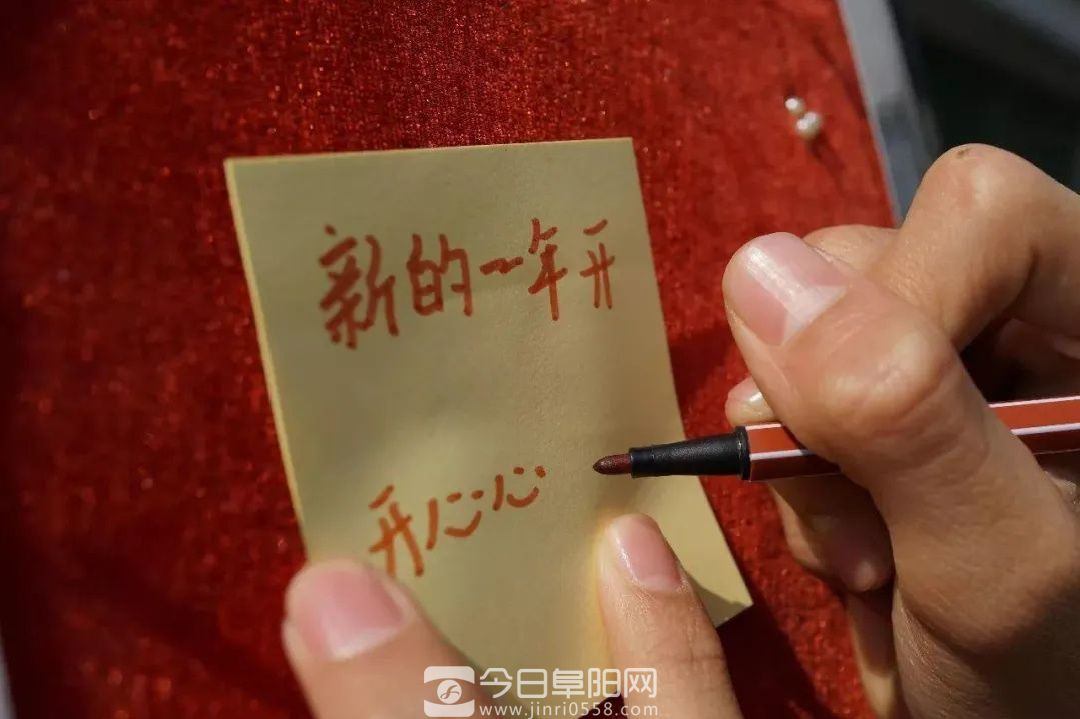 新的一年开
开心心
今日阜阳网
www.jinri0558.com